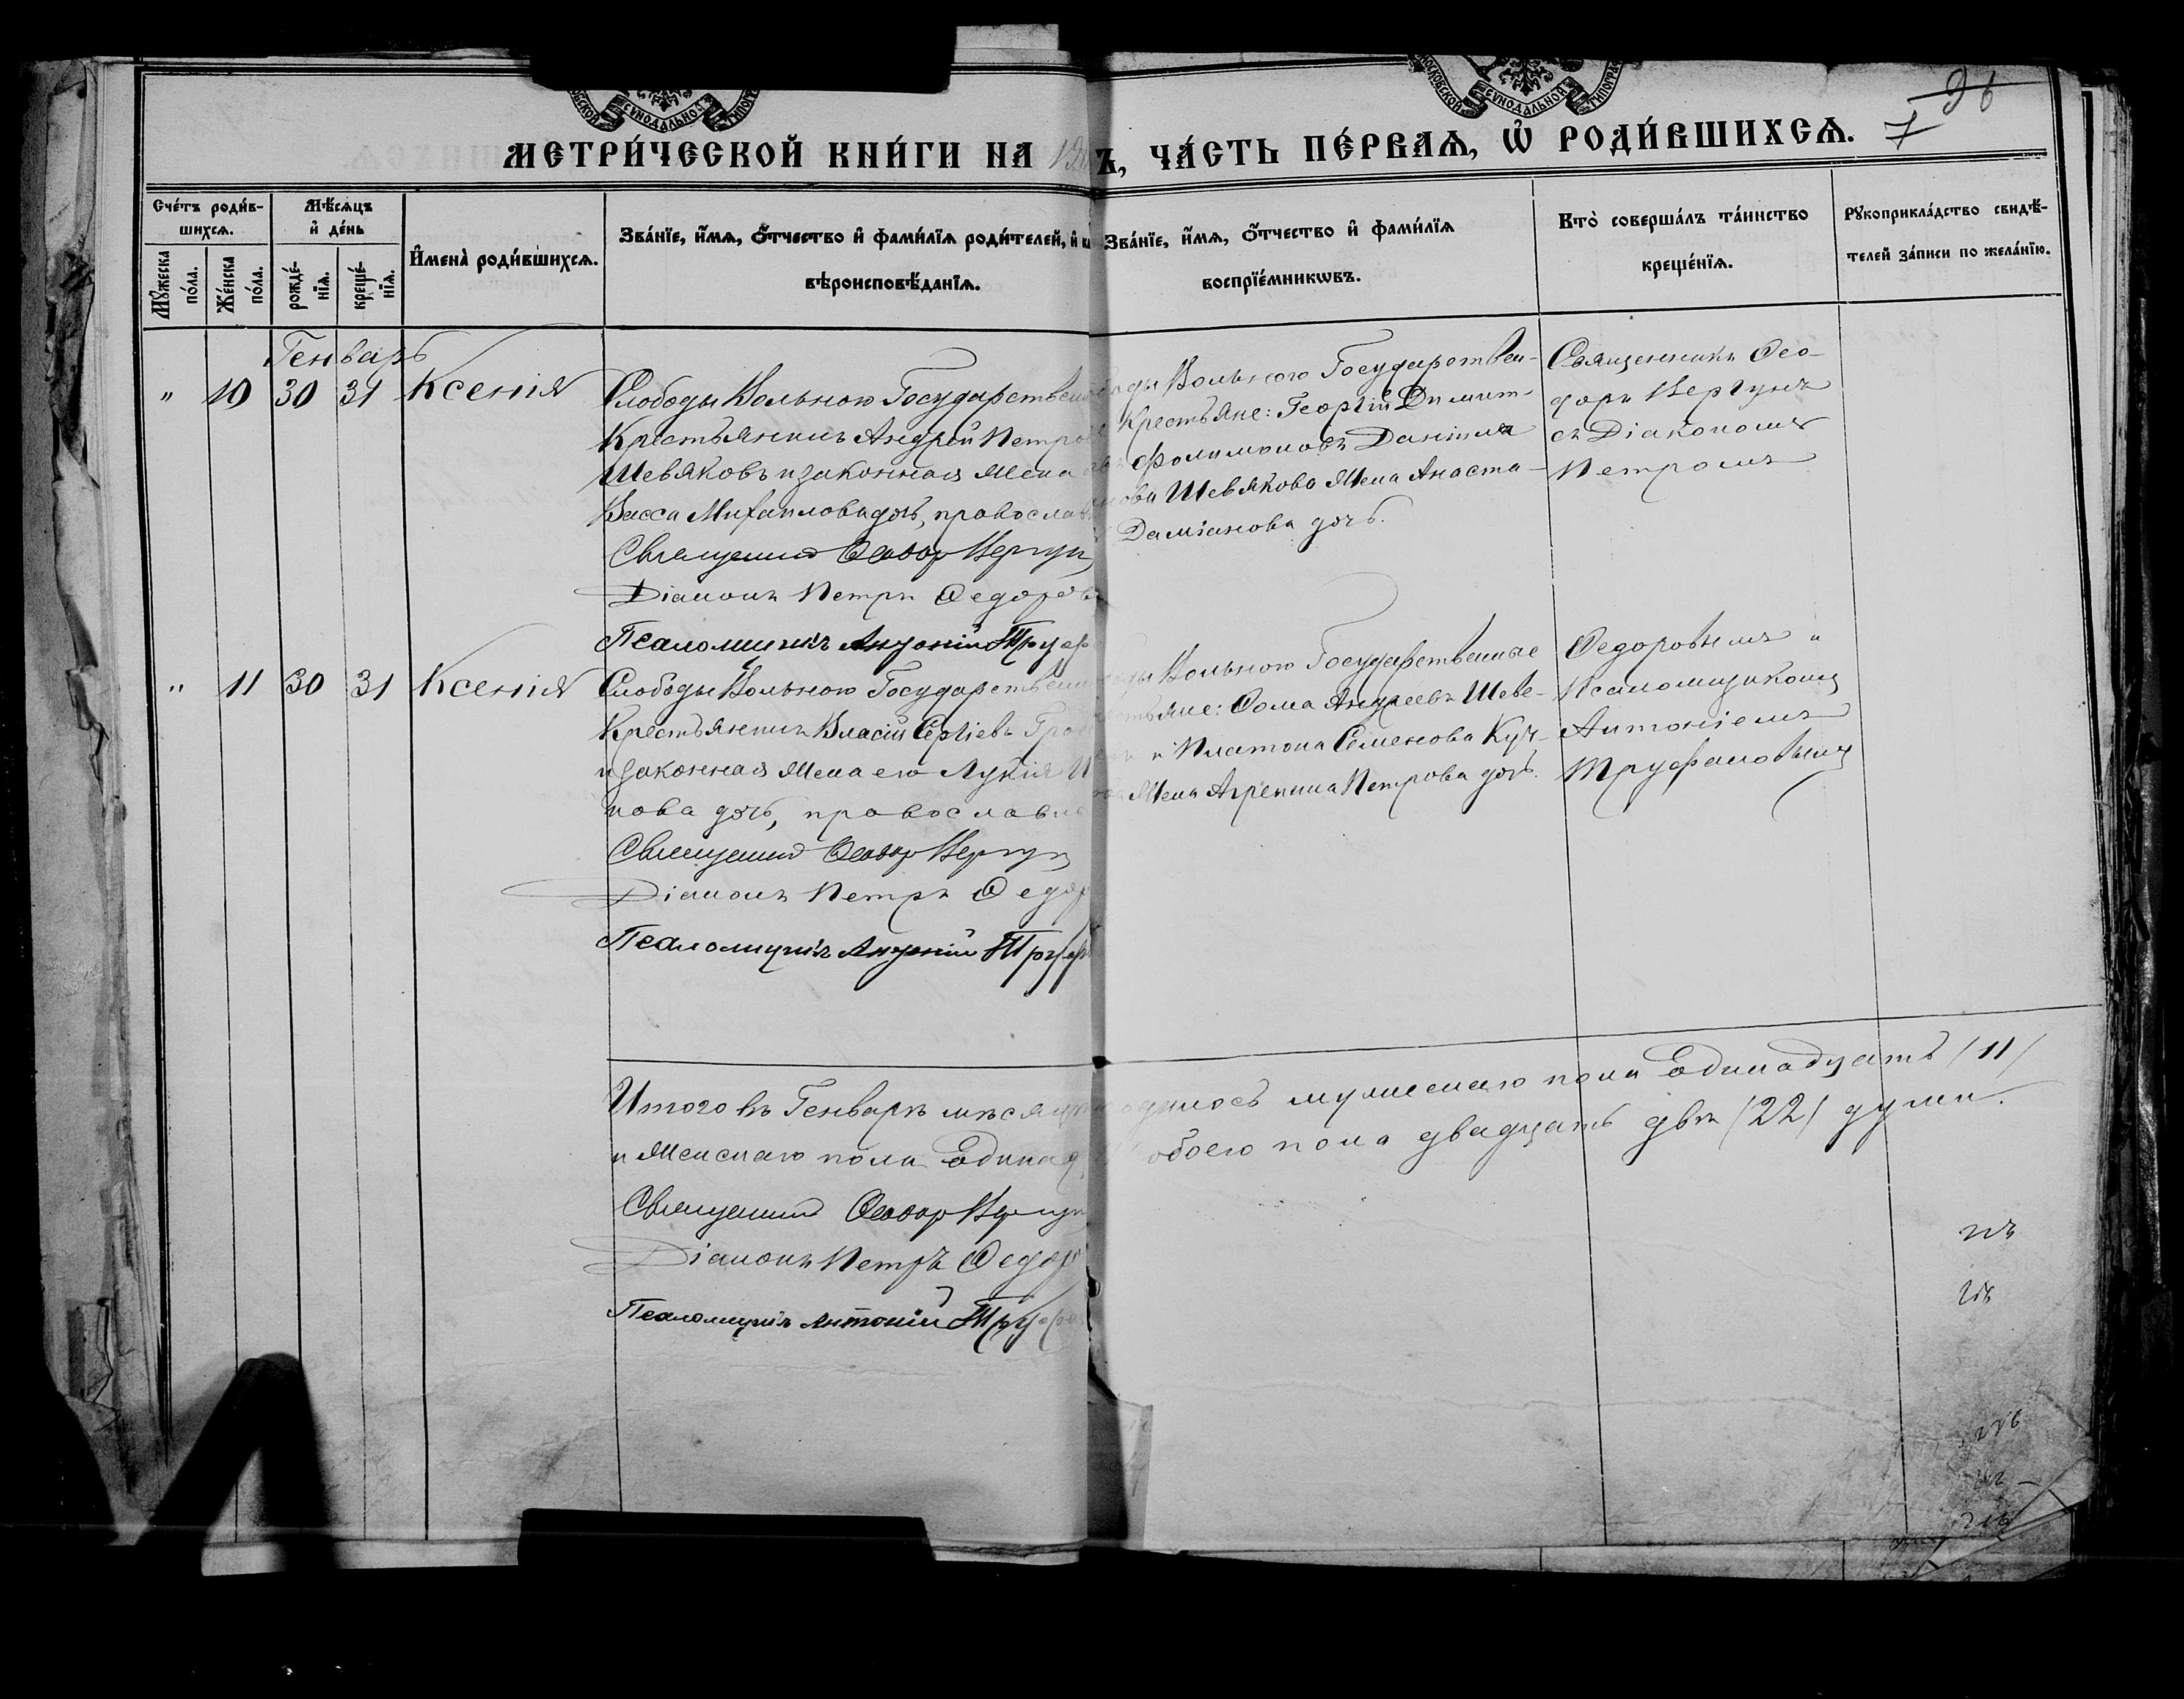 МОСКОВСКОЙ СѴНОДАЛЬНОЙ ТИПОГРА
МЕТРИ́ЧЕСКОЙ КНИ́ГИ НА
Ъ, ЧА́СТЬ ПЕ́РВАѦ, Ѿ РОДИ́ВШИХСѦ.
7
Сче́тъ роди́в-
шихсѧ.
Мѣ́сѧцъ
и҆ де́нь
Мꙋ́жеска
по́ла.
Же́нска
по́ла.
рожде́-
нїѧ.
креще́-
нїѧ.
И҆мена̀ роди́вшихсѧ.
Зва́нїе, и҆́мѧ, ѻ҆́тчество и҆ фами́лїѧ роди́телей, и҆
вѣроисповѣ́данїѧ.
Зва́нїе, и҆́мѧ, ѻ҆́тчество и҆ фами́лїѧ
воспрїе́мникѡвъ.
Кто̀ соверша́лъ та́инство
креще́нїѧ.
Рꙋкоприкла́дство свидѣ́-
телей за́писи по жела́нїю.
Генварь
" 10 30 31 Ксенія
Слободы Вольного Государствен
Крестьянинъ Андрей Петров
Шевяковъ и законная жена
Васса Михаилова дочь, православ
Священникъ Ѳеодоръ Вергун
Діаконъ Петръ Ѳедоровъ
Псаломщикъ Антоній Труф
Вольного Государствен-
Крестьяне: Георгій Димит-
Филимоновъ Данiила
Шевякова жена Анаста-
Даміанова дочь.
Священникъ Ѳео-
доръ Вергунъ
съ Діакономъ
Петромъ
" 11 30 31 Ксенія
Слободы Вольного Государствен
Крестьянинъ Власій Сергіевъ
и законная жена его Лукія
нова дочь, православн
Священникъ Ѳеодоръ Вергун
Діаконъ Петръ Ѳедор
Псаломщикъ Антоній Труф
Вольного Государственные
Ѳома Андреевъ Шеве-
и Платона Семенова Куч-
жена Агрепина Петрова дочь.
Ѳедоровымъ и
Псаломщикомъ
Антоніемъ
Труфановымъ
Итого въ Генварѣ мѣсяцѣ
родилось мужескаго пола Единадцать /11/
и женскаго пола Единад
обоего пола двадцать двѣ /22/ души.
Священникъ Ѳеодоръ Вергун
Діаконъ Петръ Ѳедор
Псаломщикъ Антоній Труфа